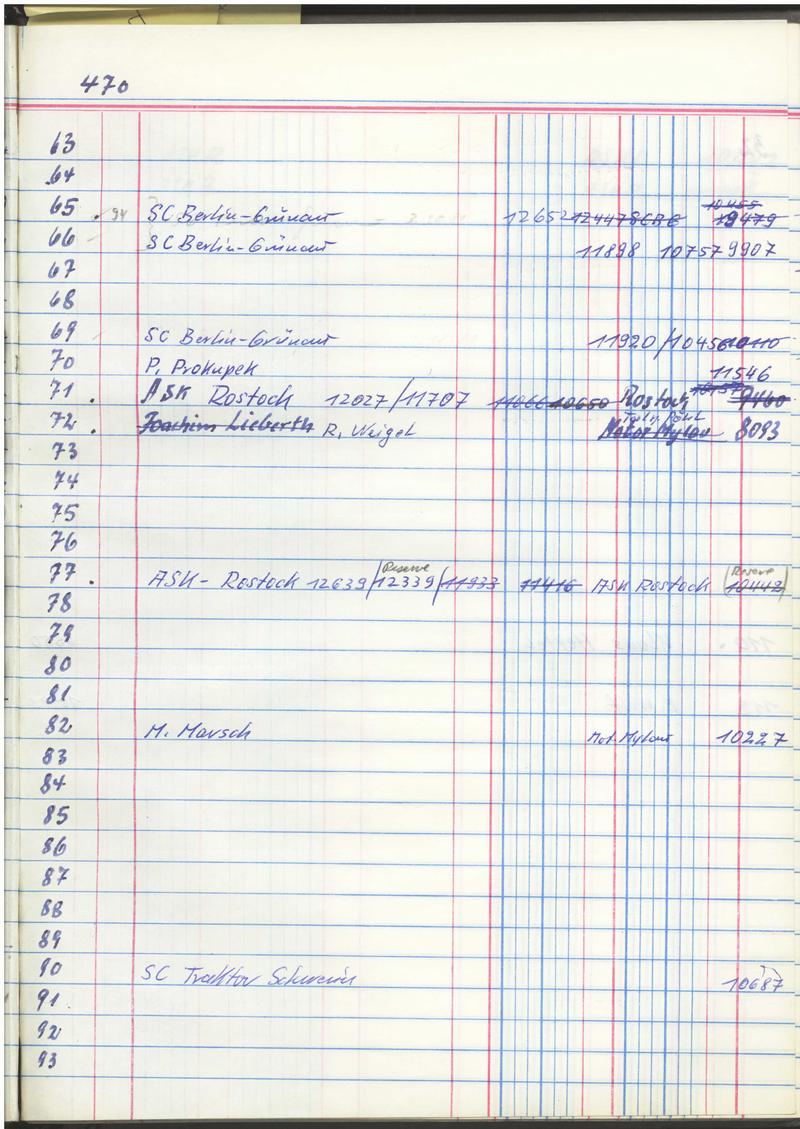 470
63
64
10455
65 . 94 SC Berlin-Grünau 12652 12447 SCBG 9479
66 SC Berlin-Grünau 11898 10757 9907
67
68
69 SC Berlin-Grünau 11920/10456 10110
70 P. Prokupek 11546
71 . ASK Rostock 12027/11707 11066 10650 Rostock 10157 9460
72 . Joachim Lieberth R. Weigel Motor Mylau 8093
73
74
75
76
Reserve Reserve
77 . ASK - Rostock 12639/12339/11933 11416 ASK Rostock 10442
78
79
80
81
82 M. Marsch Mot. Mylau 10227
83
84
85
86
87
88
89
90 SC Traktor Schwerin 10687
91
92
93